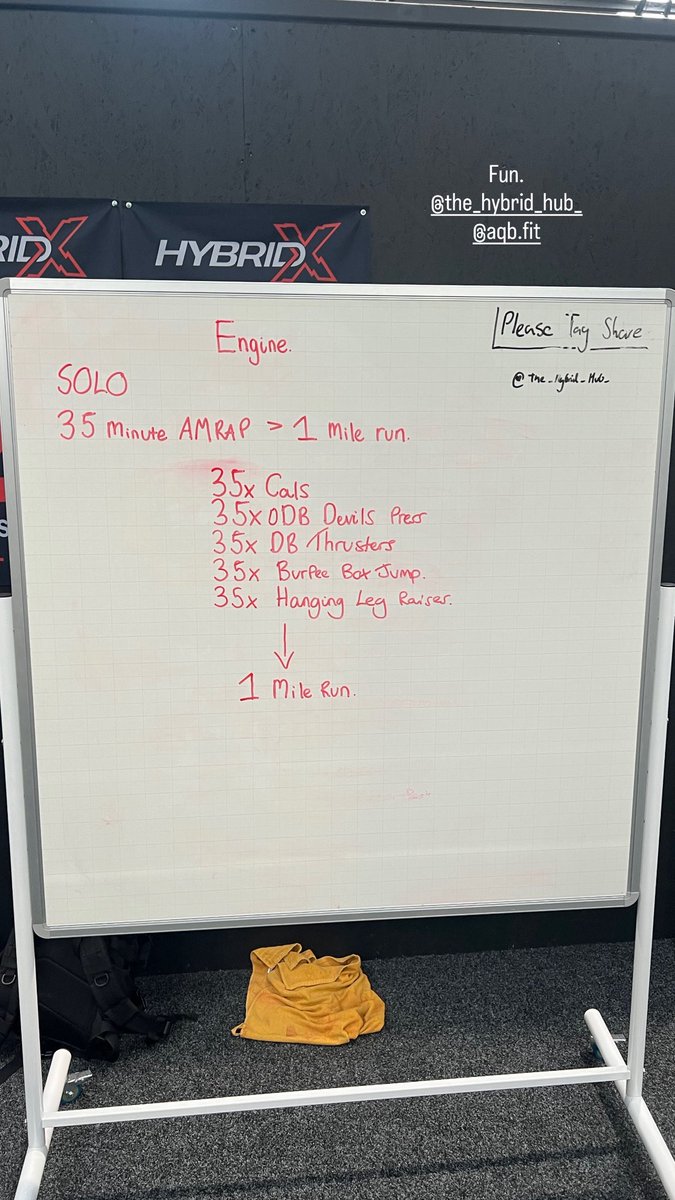 Fun.
@the_hybrid_hub_
@aqb.fit
RIDX
HYBRIDX
Engine.
Please Tag Share
@The_Hybrid_Hub_
SOLO
35 Minute AMRAP > 1 Mile run.
35x Cals
35x ODB Devils Press
35x DB Thrusters
35x Burpee Box Jump.
35x Hanging Leg Raises.
1 Mile Run.